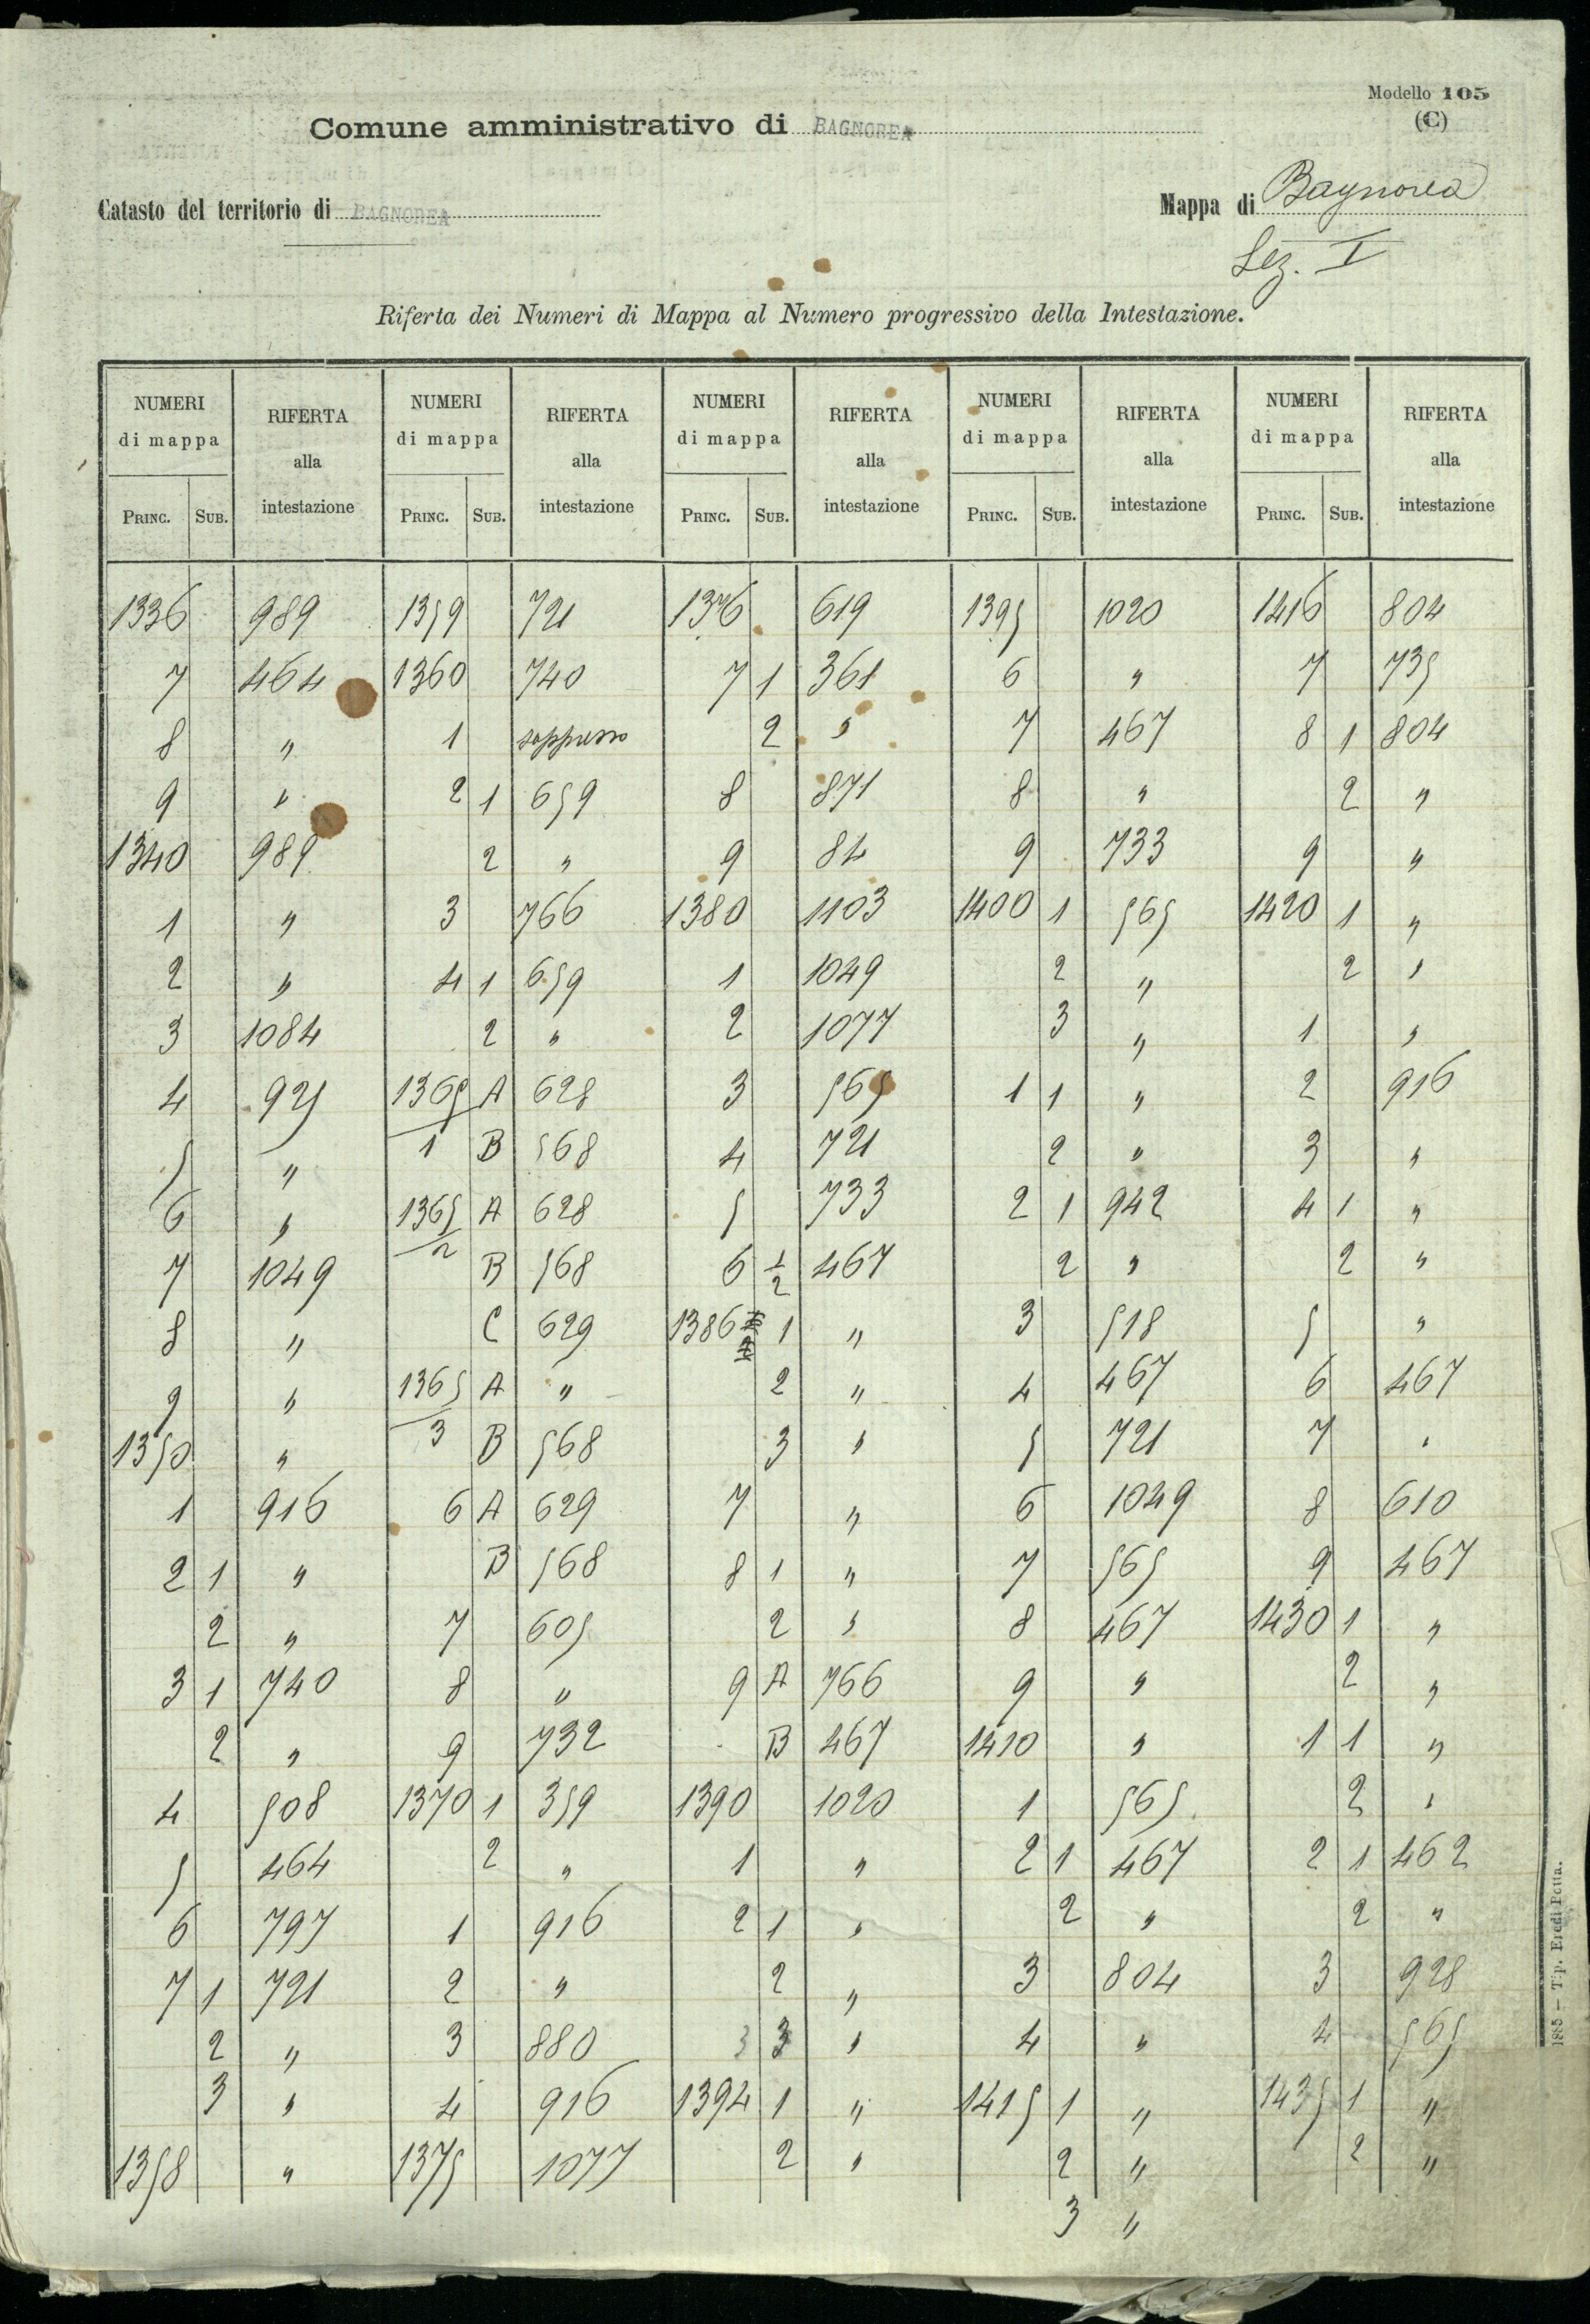 Modello 105
(C)
Comune amministrativo di BAGNOREA
Catasto del territorio di BAGNOREA
Mappa di Bagnorea
Sez. I
Riferta dei Numeri di Mappa al Numero progressivo della Intestazione.
NUMERI di mappa RIFERTA alla intestazione NUMERI di mappa RIFERTA alla intestazione NUMERI di mappa RIFERTA alla intestazione NUMERI di mappa RIFERTA alla intestazione NUMERI di mappa RIFERTA alla intestazione
PRINC. SUB. PRINC. SUB. PRINC. SUB. PRINC. SUB. PRINC. SUB.
1336 989 1359 721 1376 619 1395 1020 1416 804
7 464 1360 740 7 1 361 6 " 7 735
8 " 1 soppresso 2 " 7 467 8 1 804
9 " 2 1 659 8 871 8 " 2 "
1340 989 2 " 9 84 9 733 9 "
1 " 3 766 1380 1103 1400 1 565 1420 1 "
2 " 4 1 659 1 1049 2 " 2 "
3 1084 2 " 2 1077 3 " 1 "
4 925 1365/1 A 628 3 565 1 1 " 2 916
5 " B 568 4 721 2 " 3 "
6 " 1365/2 A 628 5 733 2 1 942 4 1 "
7 1049 B 568 6 1/2 467 2 " 2 "
8 " C 629 1386 1 " 3 518 5 "
9 " 1365/3 A " 2 " 4 467 6 467
1350 " B 568 3 " 5 721 7 "
1 916 6 A 629 7 " 6 1049 8 610
2 1 " B 568 8 1 " 7 565 9 467
2 " 7 605 2 " 8 467 1430 1 "
3 1 740 8 " 9 A 766 9 " 2 "
2 " 9 732 B 467 1410 " 1 1 "
4 508 1370 1 359 1390 1020 1 565 2 "
5 464 2 " 1 " 2 1 467 2 1 462
6 797 1 916 2 1 " 2 " 2 "
7 1 721 2 " 2 " 3 804 3 928
2 " 3 880 3 3 " 4 " 4 565
3 " 4 916 1394 1 " 1415 1 " 1435 1 "
1358 " 1375 1077 2 " 2 " 2 "
3 "
1885 — Tip. Eredi Botta.